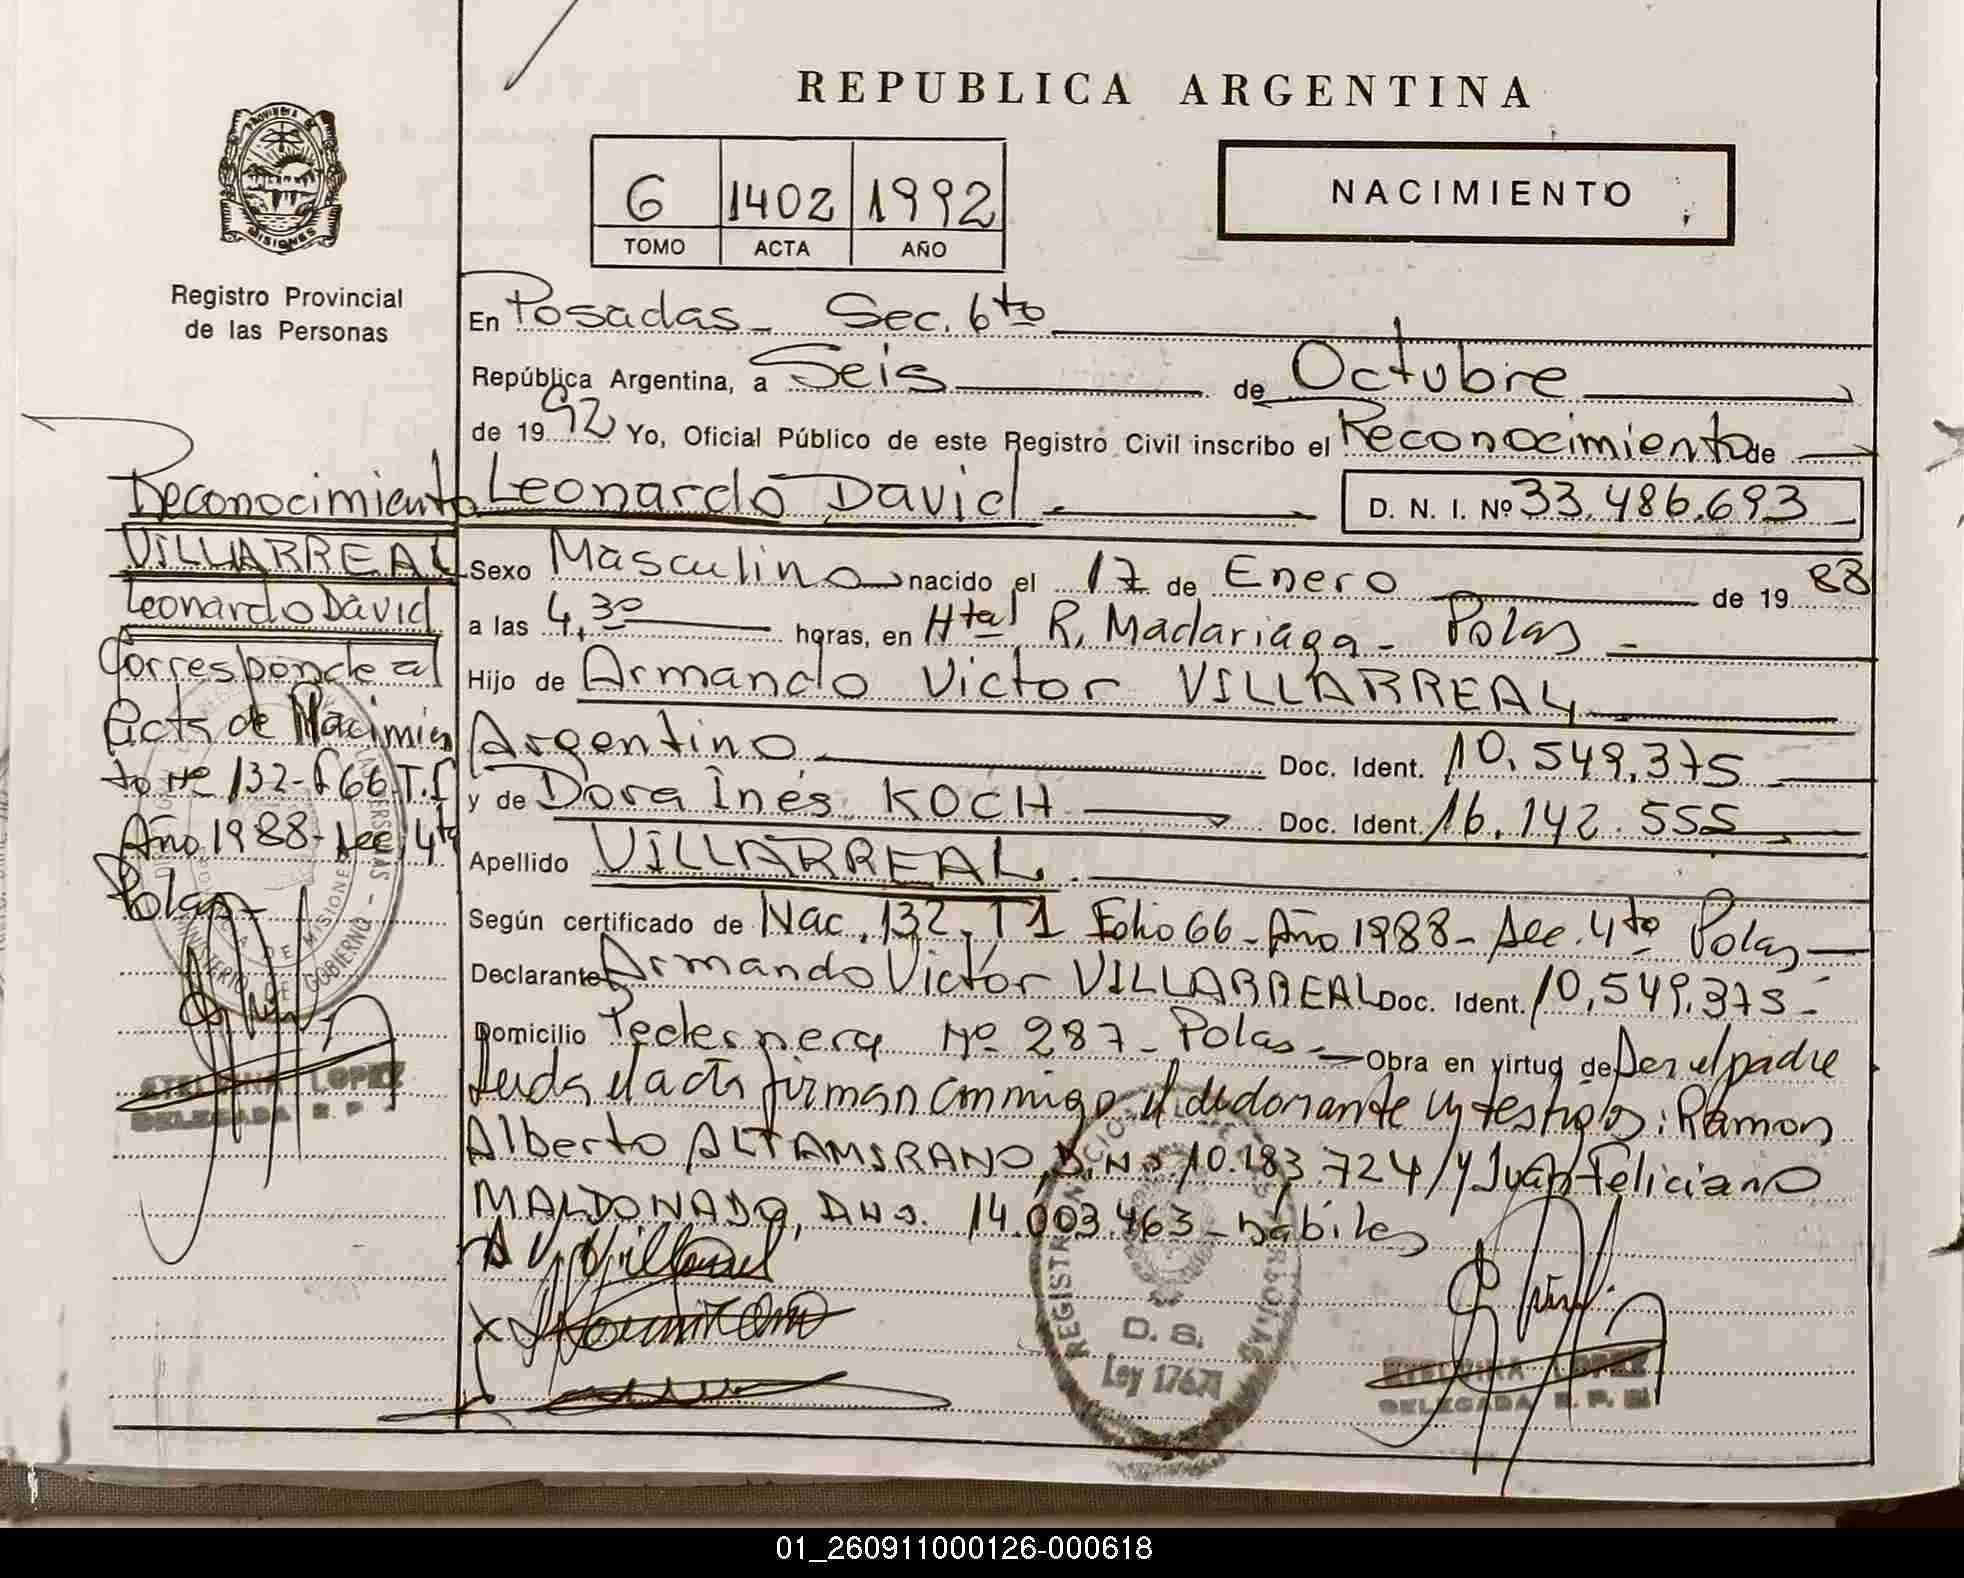 REPUBLICA ARGENTINA
PROVINCIA DE
MISIONES
6 1402 1992
TOMO ACTA AÑO
NACIMIENTO
Registro Provincial
de las Personas
En Posadas - Sec. 6to
República Argentina, a Seis de Octubre
de 1992 Yo, Oficial Público de este Registro Civil inscribo el Reconocimiento de
Leonardo David D. N. I. Nº 33.486.693
Sexo Masculino nacido el 17 de Enero de 1988
a las 4,30 horas, en Htal R. Madariaga - Pdas -
Hijo de Armando Victor VILLARREAL
Argentino Doc. Ident. 10.549.375
y de Dora Inés KOCH Doc. Ident. 16.142.555
Apellido VILLARREAL
Según certificado de Nac. 132. T1 Folio 66 - Año 1988 - Sec. 4to Pdas
Declarante Armando Victor VILLARREAL Doc. Ident. 10.549.375
Domicilio Pedernera Nº 287 - Pdas - Obra en virtud de Ser el padre
Leida el acta firman conmigo el declarante y testigos: Ramon
Alberto ALTAMIRANO, D.N.I. 10.183.724 / y Juan Feliciano
MALDONADO, D.N.I. 14.003.463 - hábiles
Reconocimiento
VILLARREAL
Leonardo David
Corresponde al
Acta de Nacimien
to Nº 132 - f 66 T.I
Año 1988 - Sec. 4ta
Pdas -
MINISTERIO DE GOBIERNO
MISIONES
ETELVINA LOPEZ
DELEGADA R. P.
D. S.
Ley 17671
ETELVINA LOPEZ
DELEGADA R. P.
01_260911000126-000618